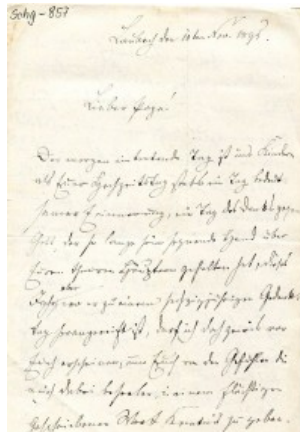 Schg-857
Laubach den 10ten Nov. 1895.
Lieber Papa!
Der morgen eintretende Tag ist uns Kindern
als Euer Hochzeitstag stets ein Tag
Erinnerung, ein Tag des Danks gegen
Gott, der so lange seine segnende Hand über
Euren theuren Häuptern gehalten hat, dieses
aber
wo er zu einem sechzigjährigen Gedenk-
tag herangereift ist, darf ich doch vor
Euch erscheinen, um Euch von den Gefühlen die
mich dabei beseelen, in einem flüchtigen
geschriebenen Wort Kenntniß zu geben.